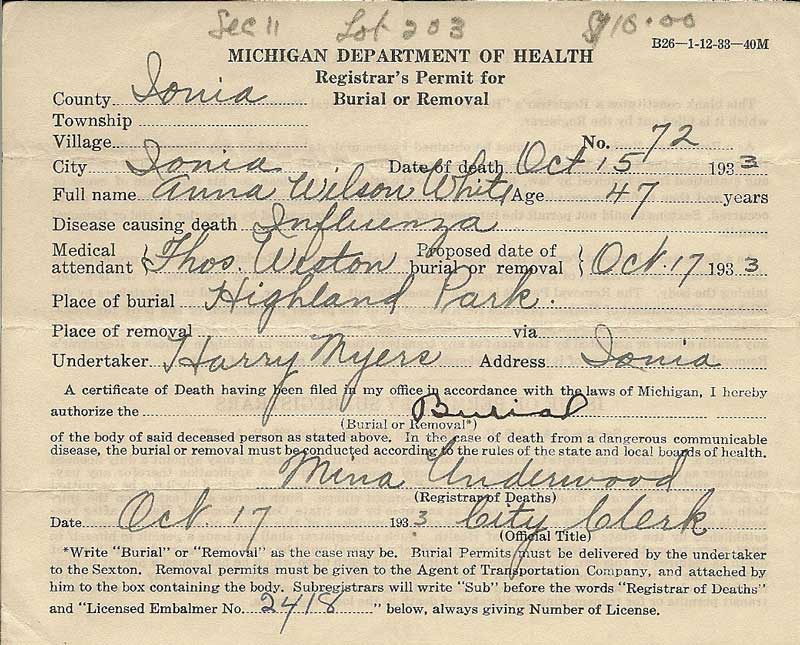 Sec 11 Lot 203 $18.00
B26—1-12-33—40M
MICHIGAN DEPARTMENT OF HEALTH
Registrar's Permit for
Burial or Removal
County Ionia
Township
Village No. 72
City Ionia Date of death Oct 15 1933
Full name Anna Wilson White Age 47 years
Disease causing death Influenza
Medical attendant Thos. Weston Proposed date of burial or removal Oct. 17 1933
Place of burial Highland Park.
Place of removal via
Undertaker Harry Myers Address Ionia
A certificate of Death having been filed in my office in accordance with the laws of Michigan, I hereby
authorize the Burial
(Burial or Removal*)
of the body of said deceased person as stated above. In the case of death from a dangerous communicable
disease, the burial or removal must be conducted according to the rules of the state and local boards of health.
Mina Underwood
(Registrar of Deaths)
Date Oct. 17 1933 City Clerk
(Official Title)
*Write "Burial" or "Removal" as the case may be. Burial Permits must be delivered by the undertaker
to the Sexton. Removal permits must be given to the Agent of Transportation Company, and attached by
him to the box containing the body. Subregistrars will write "Sub" before the words "Registrar of Deaths"
and "Licensed Embalmer No. 2418" below, always giving Number of License.